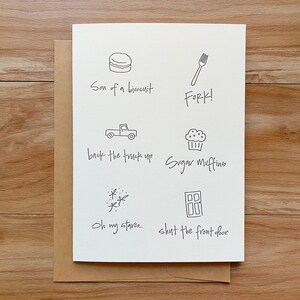 Son of a biscuit
Fork!
back the truck up
Sugar muffins
Oh my stars..
shut the front door